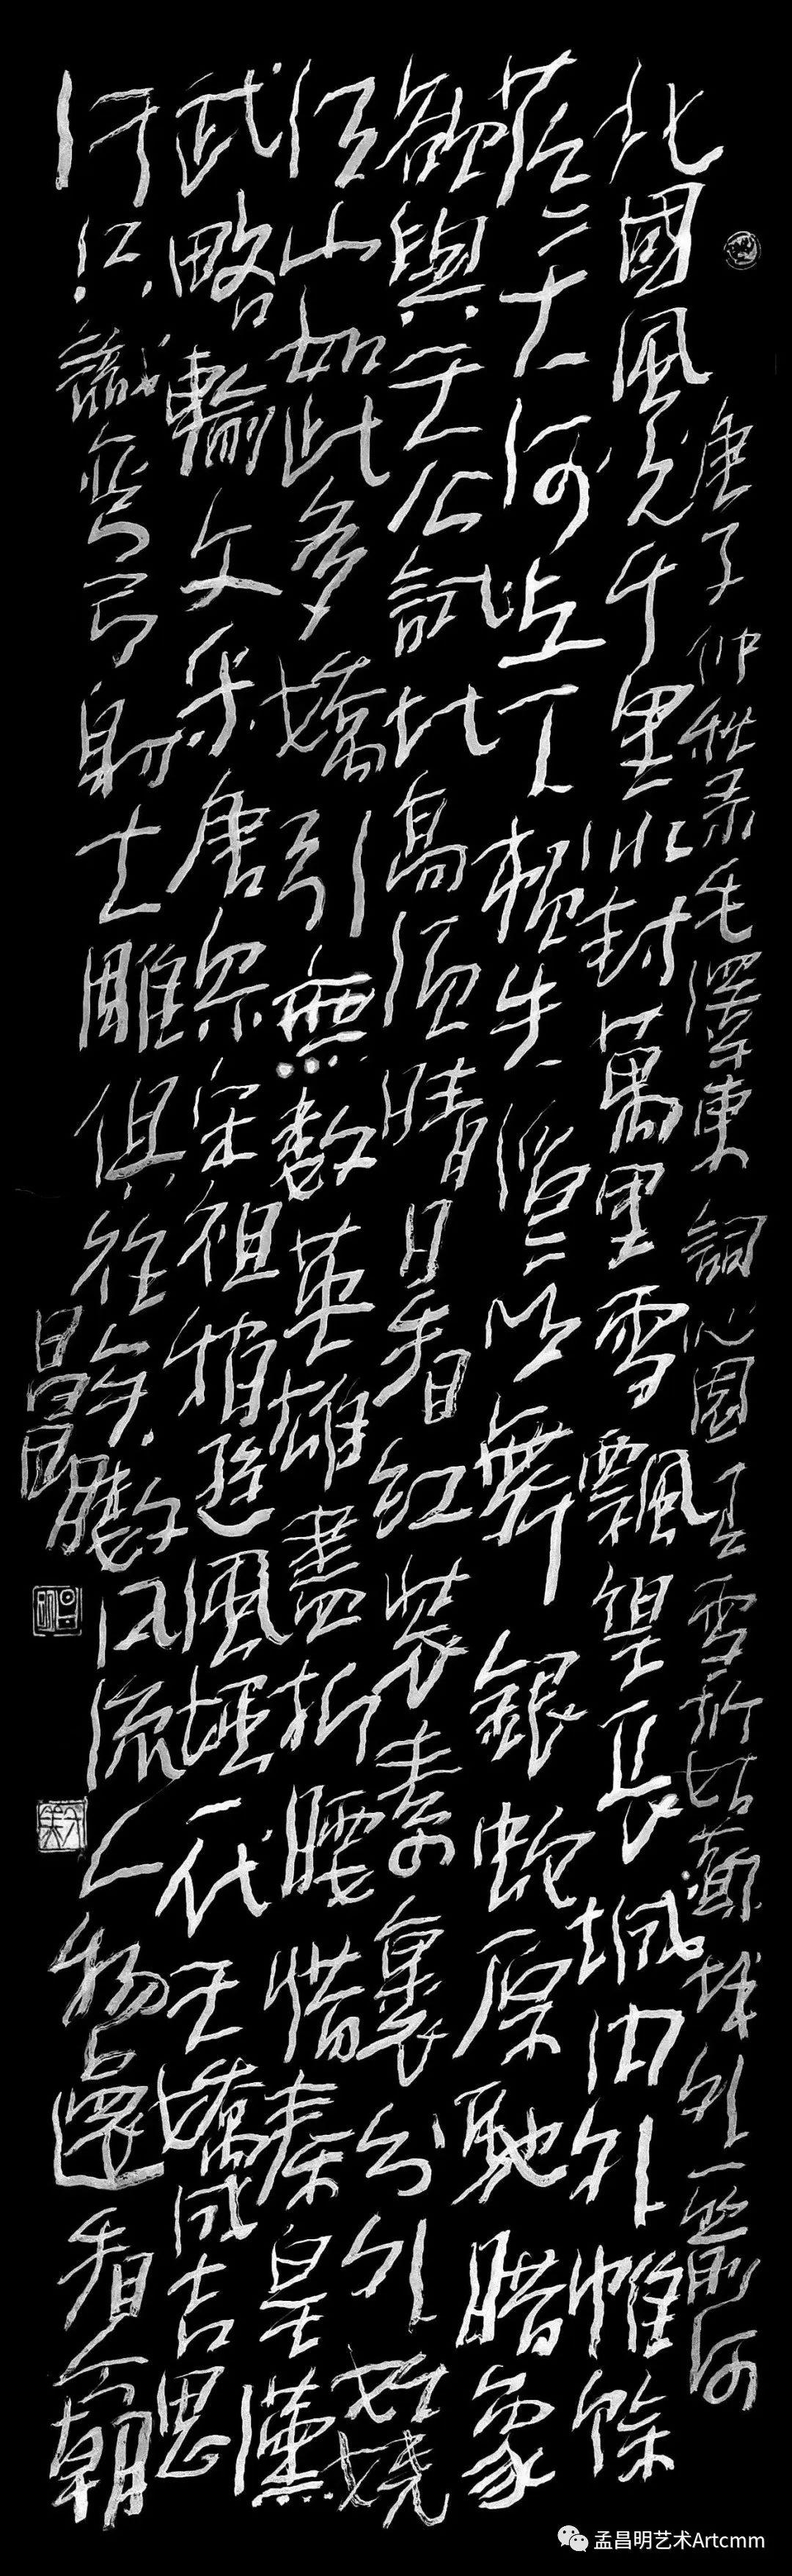 庚子仲秋录毛澤東詞沁園春雪於姑蘇城外一箭河
北國風光千里冰封萬里雪飄望長城内外惟餘
莽〻大河上下頓失滔〻山舞銀蛇原馳腊象
欲與天公試比高須晴日看红裝素裹分外妖嬈
江山如此多嬌引無數英雄盡折腰惜秦皇漢
武略輸文采唐宗宋祖稍遜風騷一代天嬌成吉思
汗只識彎弓射大雕俱往矣数風流人物還看今朝
昌明
孟昌明艺术Artcmm